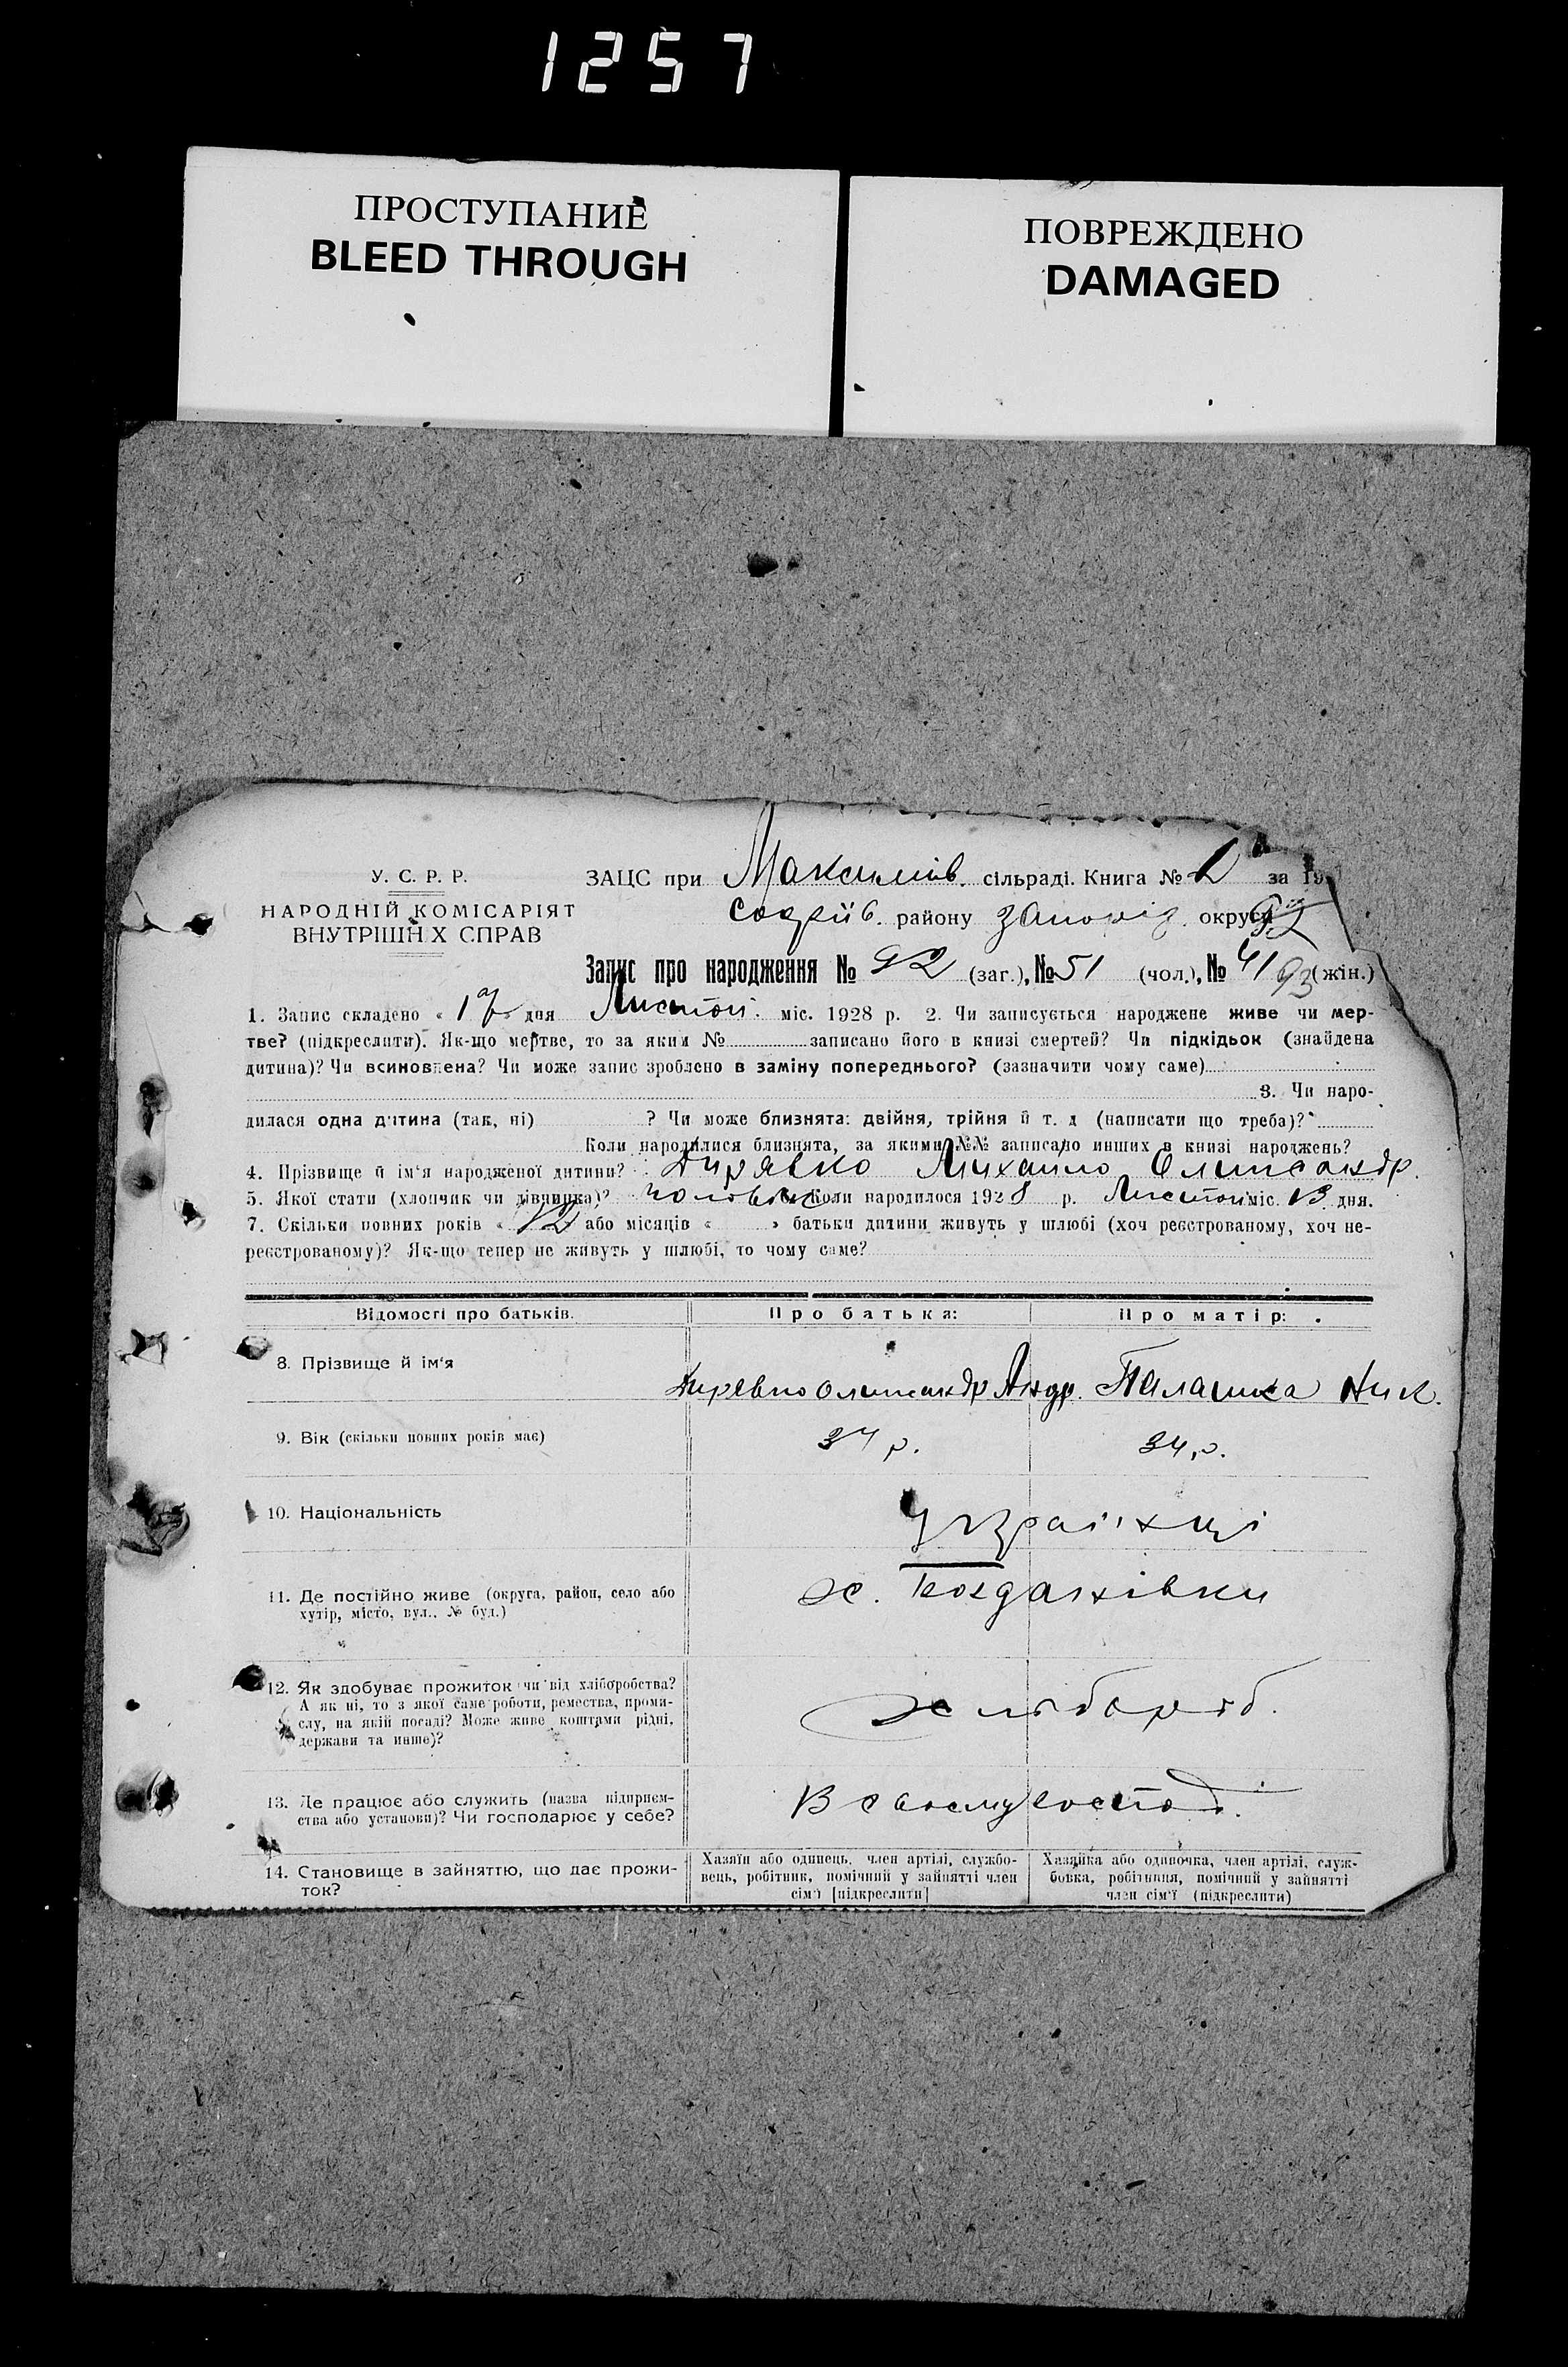 1257
ПРОСТУПАНИЕ
BLEED THROUGH
ПОВРЕЖДЕНО
DAMAGED
У. С. Р. Р.
НАРОДНІЙ КОМІСАРІЯТ
ВНУТРІШНІХ СПРАВ
ЗАЦС при Максимів. сільраді. Книга № 1 за 19
софіїв. району Запоріз. округи
Запис про народження № 92 (заг.), № 51 (чол.), № 41 93 (жін.)
1. Запис складено « 17 » дня Листоп. міс. 1928 р. 2. Чи записується народжене живе чи мер-
тве? (підкреслити). Як-що мертве, то за яким № записано його в книзі смертей? Чи підкідьок (знайдена
дитина)? Чи всиновлена? Чи може запис зроблено в заміну попереднього? (зазначити чому саме)
3. Чи наро-
дилася одна дитина (так, ні) ? Чи може близнята: двійня, трійня й т. д (написати що треба)?
Коли народилися близнята, за якими №№ записано инших в книзі народжень?
4. Прізвище й ім'я народженої дитини? Дирявко Михайло Олександр.
5. Якої стати (хлопчик чи дівчинка)? чоловік Коли народилося 1928 р. Листоп міс. 13 дня.
7. Скільки повних років « 12 або місяців « » батьки дитини живуть у шлюбі (хоч реєстрованому, хоч не-
реєстрованому)? Як-що тепер не живуть у шлюбі, то чому саме?
Відомості про батьків. Про батька: Про матір:
8. Прізвище й ім'я Дирявко Олександр Андр. Палашка Ник.
9. Вік (скільки повних років має) 34 р. 34 р.
10. Національність Українці
11. Де постійно живе (округа, район, село або
хутір, місто, вул., № буд.)
х.
12. Як здобуває прожиток чи від хліборобства?
А як ні, то з якої саме роботи, ремества, проми-
слу, на якій посаді? Може живе коштами рідні,
держави та инше)?
хлібороб.
13. Де працює або служить (назва підприєм-
ства або установи)? Чи господарює у себе?
В своєму господ.
14. Становище в зайняттю, що дає прожи-
ток?
Хазяїн або одинець, член артілі, службо-
вець, робітник, помічний у зайнятті член
сім'ї [підкреслити]
Хазяйка або одиночка, член артілі, служ-
бовка, робітниця, помічний у зайнятті
член сім'ї (підкреслити)